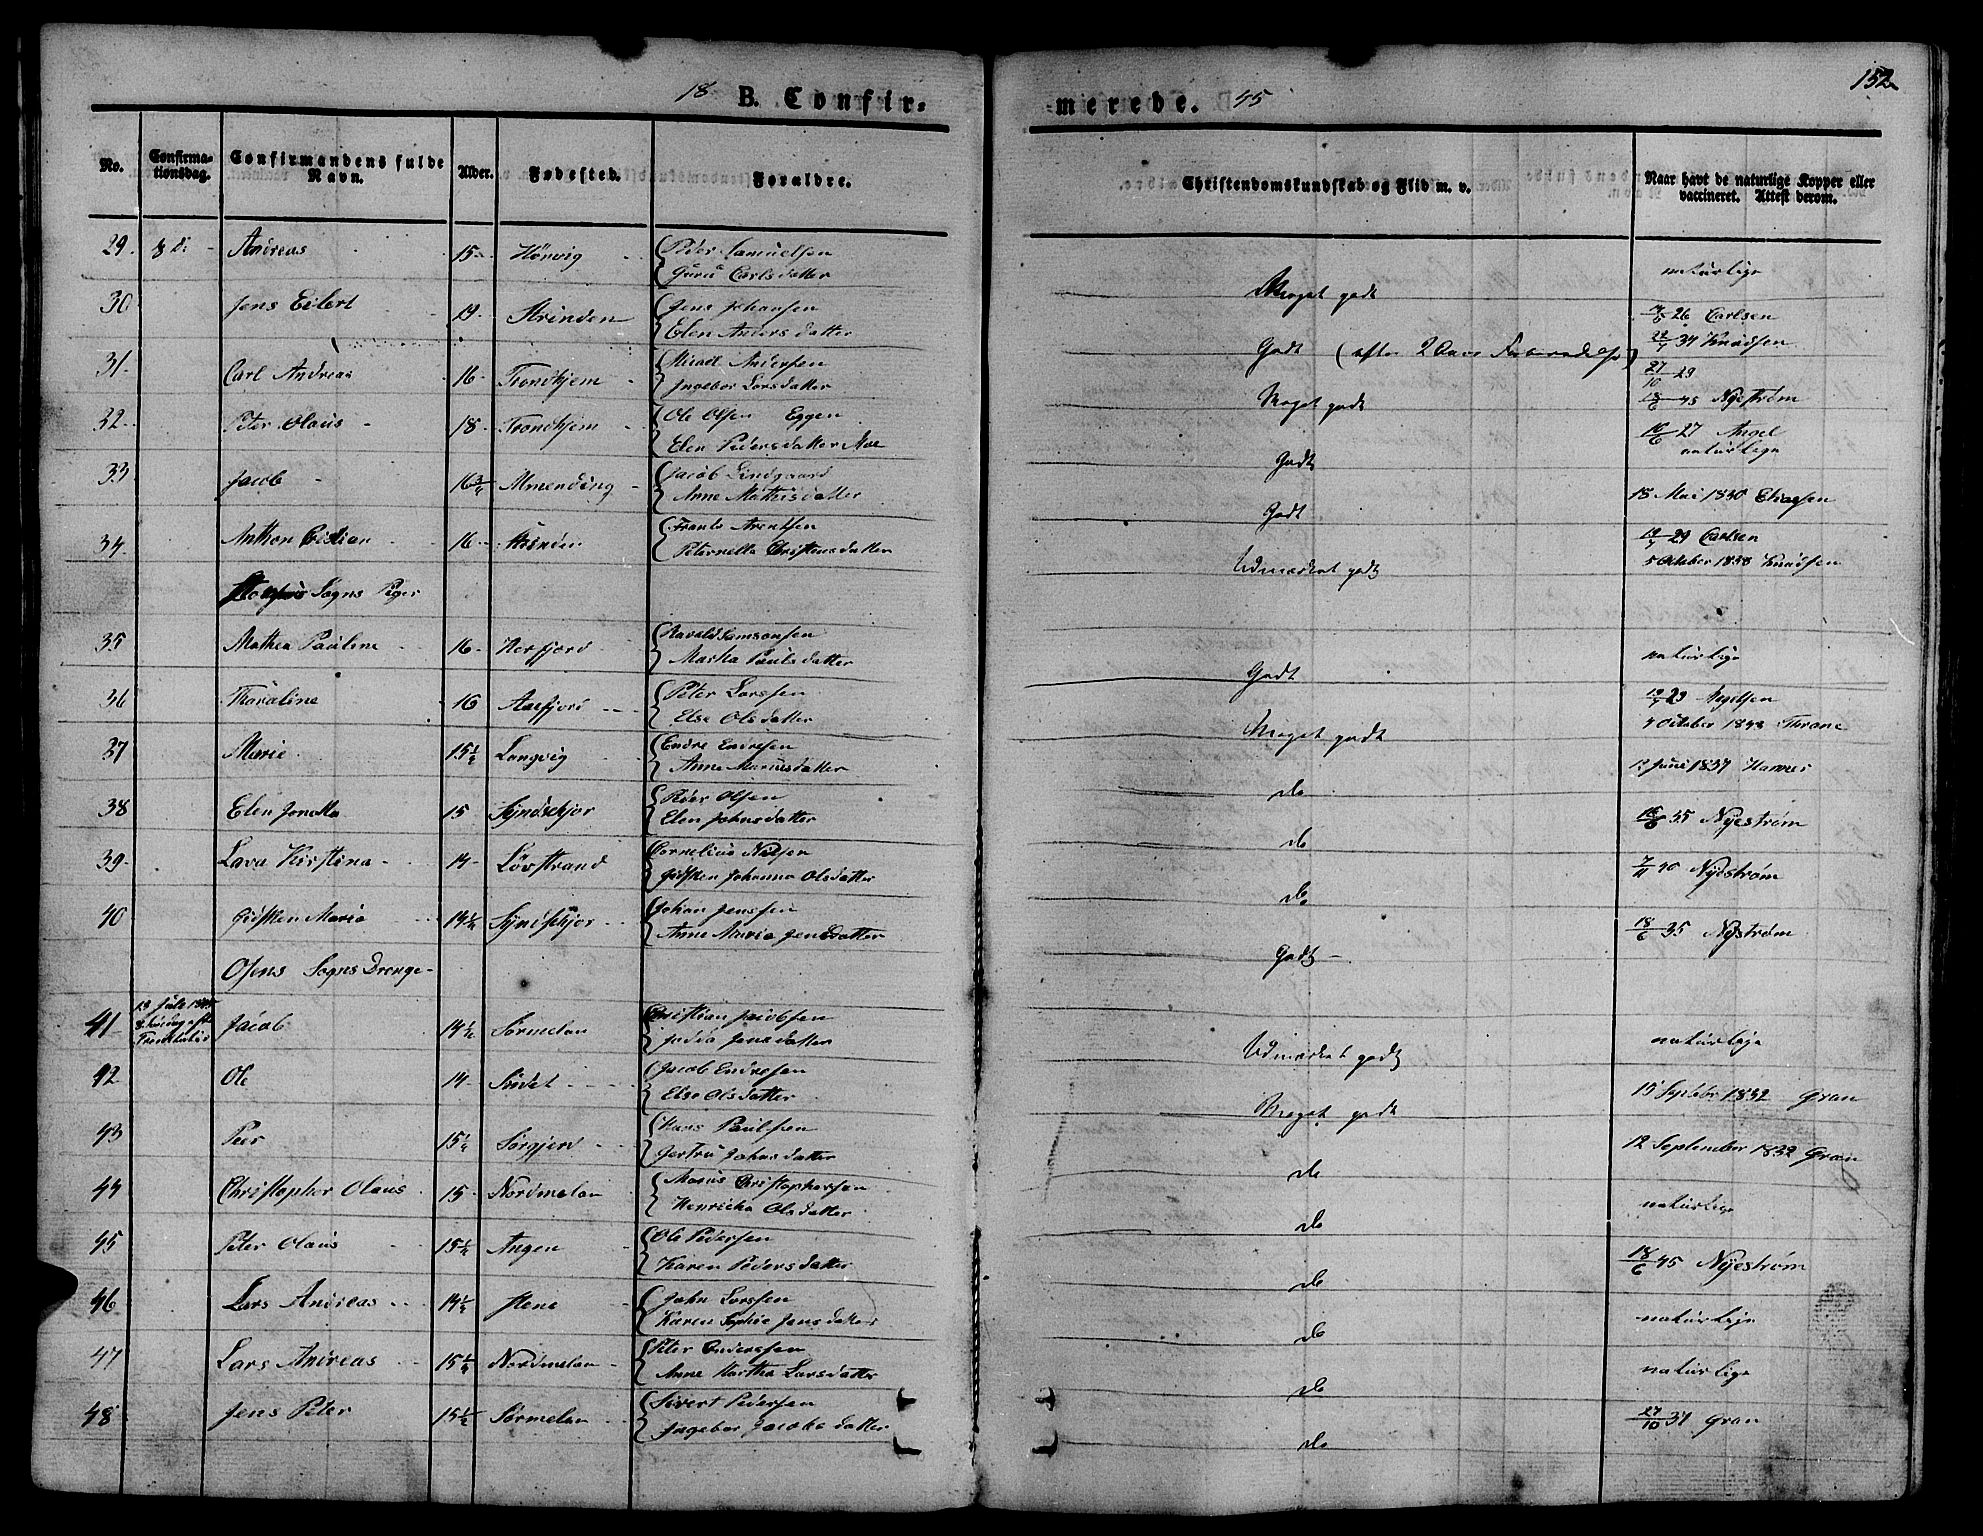 152
18 B. Confir-merede. 45
No. Confirmationsdag. Confirmandens fulde Navn. Alder. Fødested. Forældre. Christendomskundskab og Flid m. v. Naar havt de naturlige Kopper eller vaccineret. Attest derom.
29 Andreas 15 Hønvig Peder Samuelsen
Guru Carlsdatter Meget godt naturlige
30 Jens Eilert 19 Strinden Jens Johansen
Elen Andersdatter Godt (efter 2 26 Carlsen
22/7 34 Knudsen
31 Carl Andreas 16 Trondhjem Andersen
Ingebor Larsdatter Meget godt 27/10 29
18/6 45 Nyestrøm
32 Peter Olaus 18 Trondhjem Ole Olsen Eggen
Elen Pedersdatter Moe Godt 16/6 27 Angel
naturlige
33 Jacob 16 3/4 Almending Jacob Lindgaard
Anne Mathisdatter Godt 18 Mai 1830 Eliassen
34 Anthon Cristian 16 Strinden Frants Arentsen
Peternella Christensdatter Udmærket godt 29 Carlsen
5 October 1838 Knudsen
Sogns Piger
35 Mathea Pauline 16 Nerfjord Harald Samsonsen
Pauls datter Godt naturlige
36 Thoraline 16 Aaefjord Peter Larssen
Else Olsdatter Meget godt 29
4 October 1843 Thrane
37 Marie 15 1/2 Langvig Endre Endresen
Anne Mariusdatter do Juni 1837
38 Elen Jonetta 15 Syndsskjør Peder Olsen
Elen Johnsdatter do 16/6 35 Nyestrøm
39 Lava Kirstina 14 Lørstrand Cornelius Nilsen
Gidsken Johanna Olsdatter do 7/11 40 Nyestrøm
40 Gidsken Maria 14 1/2 Syndsskjør Johan Jenssen
Anne Maria Jensdatter Godt 18/6 35 Nystrøm
Osens Sogns Drenge
41 13 Juli 1845 Jacob 14 1/2 Sørmelan Christian Jacobsen
Jensdatter Udmærket godt naturlige
42 Ole 14 Sundet Jacob Endresen
Else Olsdatter Meget godt 15 Septbr 1832 Gran
43 Peer 15 1/2 Sørgjerd Hans Paulsen
Gertru Johnsdatter do 12 September 1832 Gran
44 Christopher Olaus 15 Nordmelan Marius Christophersen
Henricka Olsdatter do naturlige
45 Peter Olaus 15 1/2 Angen Ole Pedersen
Karen Pedersdatter do 18/6 45 Nyestrøm
46 Lars Andreas 14 1/2 Stene John Larssen
Karen Sophie Jensdatter do naturlige
47 Lars Andreas 15 1/2 Nordmelan Peter Anderssen
Anne Martha Larsdatter do naturlige
48 Jens Peter 15 1/2 Sørmelan Sivert Pedersen
Ingebor Jacobsdatter do 27/10 37 Gran